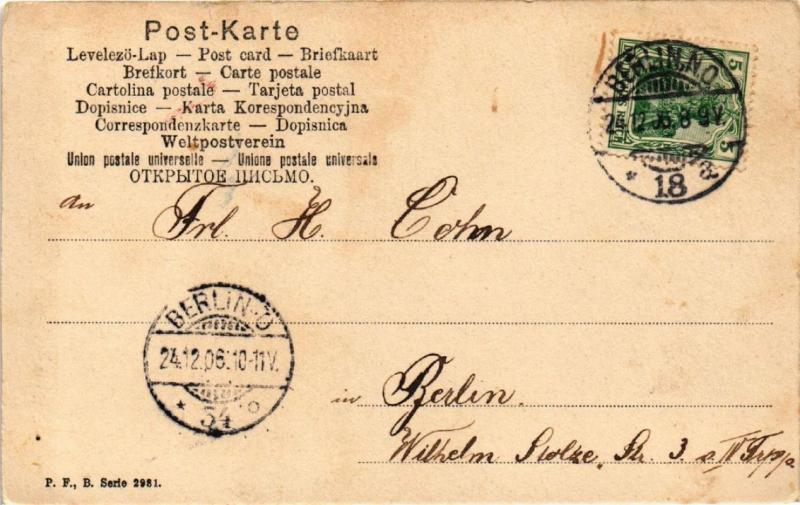 Post-Karte
Levelező-Lap — Post card — Briefkaart
Brefkort — Carte postale
Cartolina postale — Tarjeta postal
Dopisnice — Karta Korespondencyjna
Correspondenzkarte — Dopisnica
Weltpostverein
Union postale universelle — Unione postale universale
ОТКРЫТОЕ ПИСЬМО.
5
5
BERLIN.NO
12.06.8-9V.
* 18
an
Frl. H. Cohn
BERLIN-O
24.12.06.10-11V.
* 34 o
in Berlin.
Wilhelm Stolze Str. 3
P. F., B. Serie 2981.